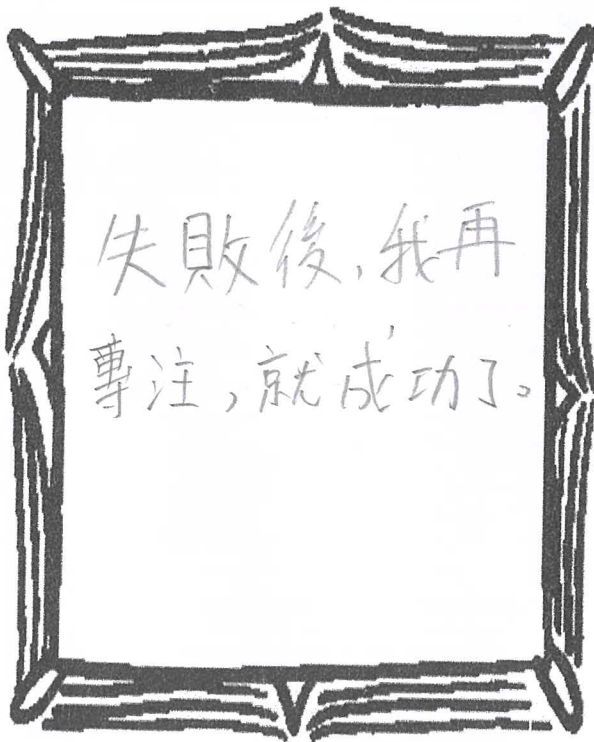 失敗後,我再
專注,就成功了。